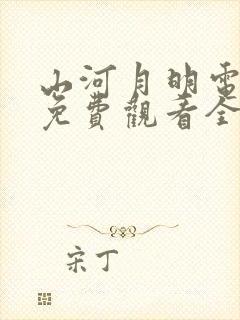 山河月明電
免費觀看全
宋丁